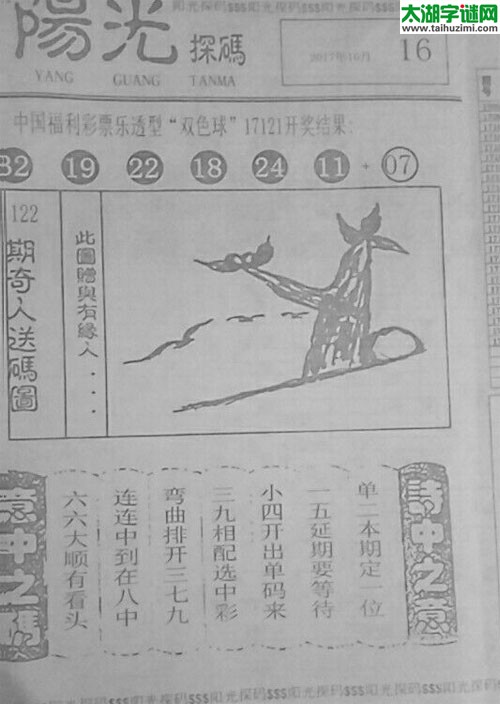 太湖字谜网
www.taihuzimi.com
阳光探码$$$阳光探码
陽光探碼
YANG GUANG TANMA
2017年10月 16
中国福利彩票乐透型“双色球”17121开奖结果:
32 19 22 18 24 11 + 07
122
期奇人送碼圖
此圖贈與有緣人...
詩中之意
单二本期定一位
一五延期要等待
小四开出单码来
三九相配选中彩
弯曲排开三七九
连连中到在八中
六六大顺有看头
意中之碼
阳光探码$$$阳光探码$$$阳光探码$$$阳光探码$$$